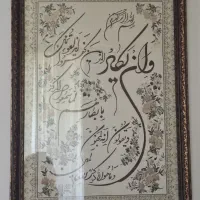 بسم الله الرحمن الرحیم
و ان یکاد
الذین کفروا لیزلقونک
بابصارهم
و یقولون انه لمجنون
و ما هو الا ذکر للعالمین